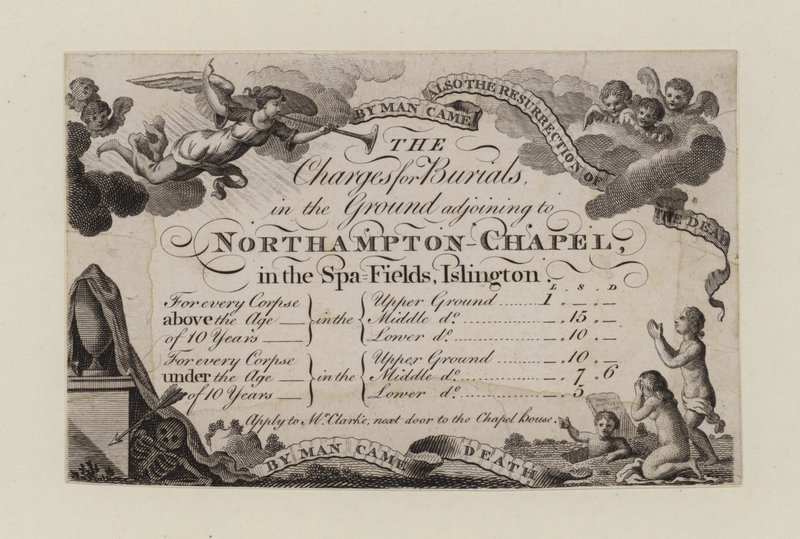 BY MAN CAME
ALSO THE RESURRECTION OF
THE DEAD
THE
Charges for Burials,
in the Ground adjoining to
NORTHAMPTON-CHAPEL,
in the Spa-Fields, Islington.
L S D
For every Corpse above the Age of 10 Years } in the { Upper Ground ........ 1 „ — „ —
Middle dº. ................ — „ 15 „ —
Lower dº. ................ — „ 10 „ —
For every Corpse under the Age of 10 Years } in the { Upper Ground ........ — „ 10 „ —
Middle dº. ................ — „ 7 „ 6
Lower dº. ................ — „ 5 „ —
Apply to Mr. Clarke, next door to the Chapel House.
BY MAN CAME DEATH